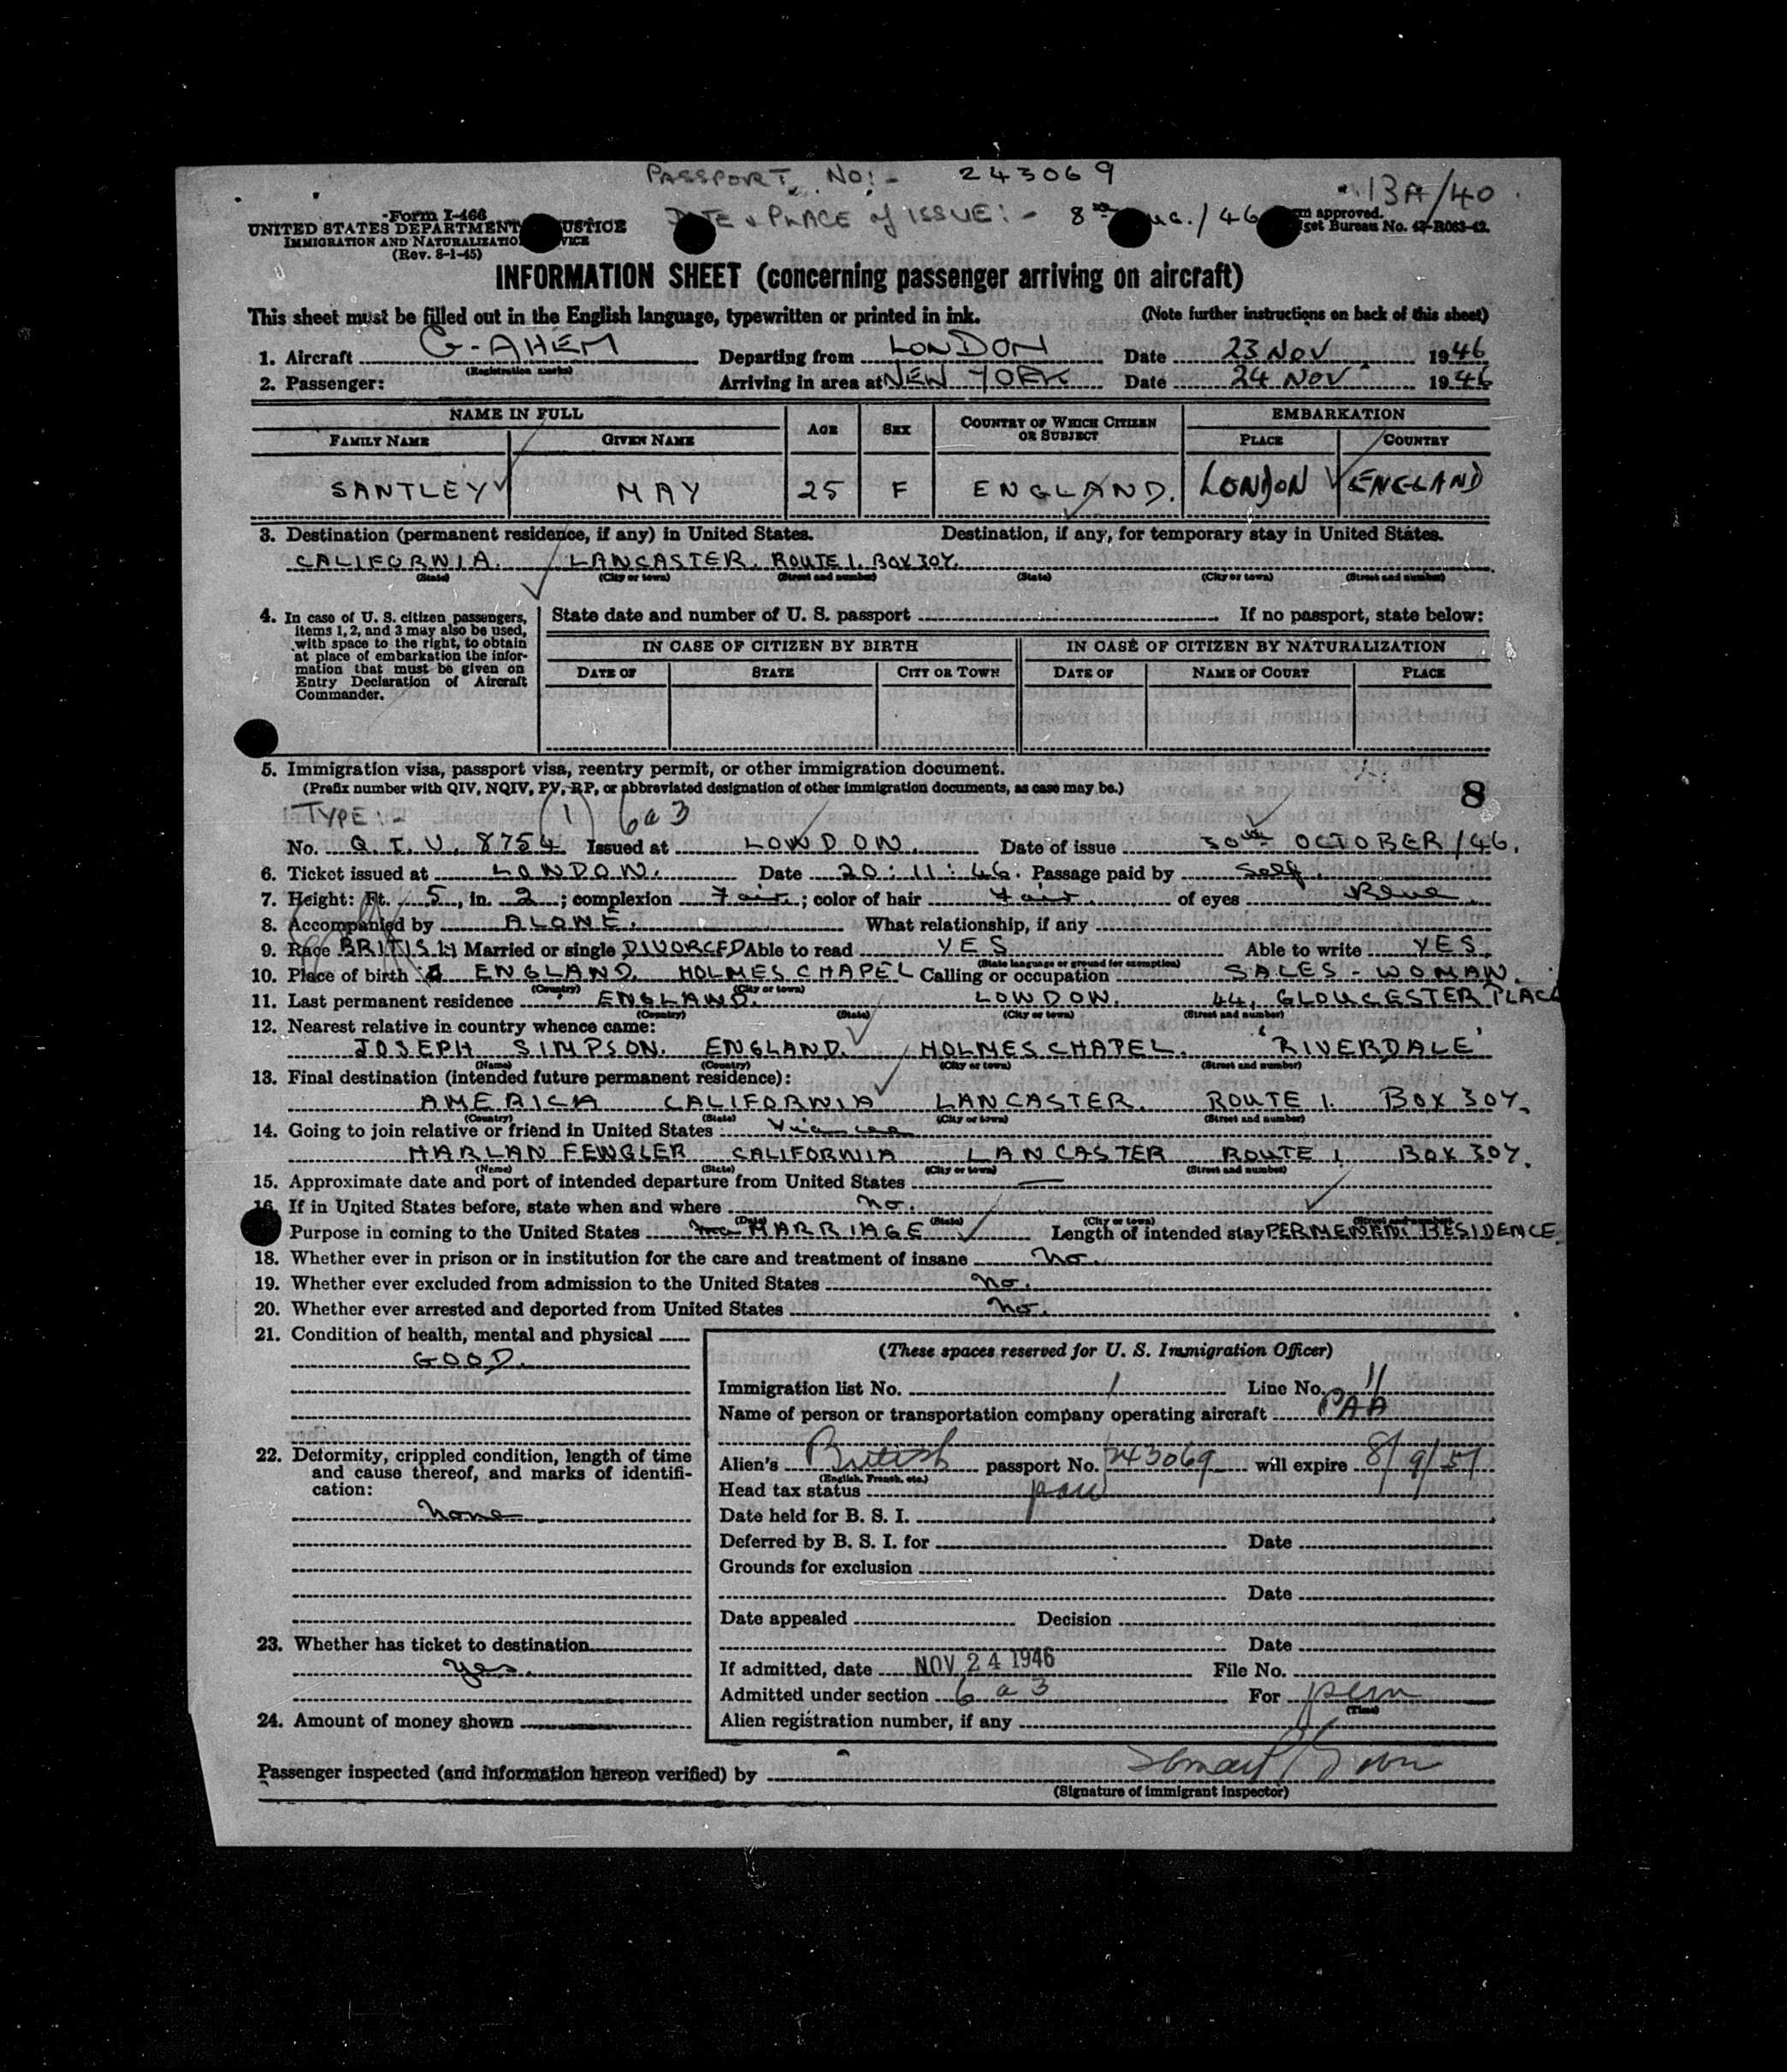 PASSPORT NO:- 243069
13A/40
Form I-466
UNITED STATES DEPARTMENT USTICE
DATE & PLACE of ISSUE:- 8 /46
m approved.
IMMIGRATION AND NATURALIZATIO VICE
get Bureau No. 43-R063-42.
(Rev. 8-1-45)
INFORMATION SHEET (concerning passenger arriving on aircraft)
This sheet must be filled out in the English language, typewritten or printed in ink. (Note further instructions on back of this sheet)
1. Aircraft G-AHEM Departing from LONDON Date 23 NOV 1946
(Registration marks)
2. Passenger: Arriving in area at NEW YORK Date 24 NOV 1946
NAME IN FULL AGE SEX COUNTRY OF WHICH CITIZEN OR SUBJECT EMBARKATION
FAMILY NAME GIVEN NAME PLACE COUNTRY
SANTLEY MAY 25 F ENGLAND. LONDON ENGLAND
3. Destination (permanent residence, if any) in United States. Destination, if any, for temporary stay in United States.
CALIFORNIA. LANCASTER. ROUTE 1. BOX 304.
(State) (City or town) (Street and number) (State) (City or town) (Street and number)
4. In case of U. S. citizen passengers, items 1, 2, and 3 may also be used, with space to the right, to obtain at place of embarkation the information that must be given on Entry Declaration of Aircraft Commander.
State date and number of U. S. passport If no passport, state below:
IN CASE OF CITIZEN BY BIRTH IN CASE OF CITIZEN BY NATURALIZATION
DATE OF STATE CITY OR TOWN DATE OF NAME OF COURT PLACE
5. Immigration visa, passport visa, reentry permit, or other immigration document.
(Prefix number with QIV, NQIV, PV, RP, or abbreviated designation of other immigration documents, as case may be.)
8
TYPE:- (1) 6a3
No. Q.I.V. 8754 Issued at LONDON. Date of issue 30th OCTOBER/46.
6. Ticket issued at LONDON. Date 20:11:46. Passage paid by Self.
7. Height: Ft. 5, in. 2; complexion Fair; color of hair Fair. of eyes Blue.
8. Accompanied by ALONE. What relationship, if any
9. Race BRITISH Married or single DIVORCED Able to read YES Able to write YES.
(State language or ground for exemption)
10. Place of birth ENGLAND. HOLMES CHAPEL Calling or occupation SALES-WOMAN.
(Country) (City or town)
11. Last permanent residence ENGLAND. LONDON. 44, GLOUCESTER PLACE
(Country) (State) (City or town) (Street and number)
12. Nearest relative in country whence came:
JOSEPH SIMPSON. ENGLAND. HOLMES CHAPEL. 'RIVERDALE'
(Name) (Country) (City or town) (Street and number)
13. Final destination (intended future permanent residence):
AMERICA CALIFORNIA LANCASTER. ROUTE 1. BOX 304.
(Country) (State) (City or town) (Street and number)
14. Going to join relative or friend in United States Fiancee
HARLAN FENGLER CALIFORNIA LANCASTER ROUTE 1. BOX 304.
(Name) (State) (City or town) (Street and number)
15. Approximate date and port of intended departure from United States —
16. If in United States before, state when and where no.
(Date) (State) (City or town) (Street and number)
Purpose in coming to the United States MARRIAGE Length of intended stay PERMENENT RESIDENCE.
18. Whether ever in prison or in institution for the care and treatment of insane no.
19. Whether ever excluded from admission to the United States no.
20. Whether ever arrested and deported from United States no.
21. Condition of health, mental and physical
GOOD.
22. Deformity, crippled condition, length of time and cause thereof, and marks of identification:
None
23. Whether has ticket to destination
yes.
24. Amount of money shown
(These spaces reserved for U. S. Immigration Officer)
Immigration list No. 1 Line No. 11
Name of person or transportation company operating aircraft PAA
Alien's British passport No. 243069 will expire 8/9/51
(English, French, etc.)
Head tax status
Date held for B. S. I.
Deferred by B. S. I. for Date
Grounds for exclusion
Date
Date appealed Decision
Date
If admitted, date NOV 24 1946 File No.
Admitted under section 6 a 3 For perm
(Time)
Alien registration number, if any
Passenger inspected (and information hereon verified) by
(Signature of immigrant inspector)